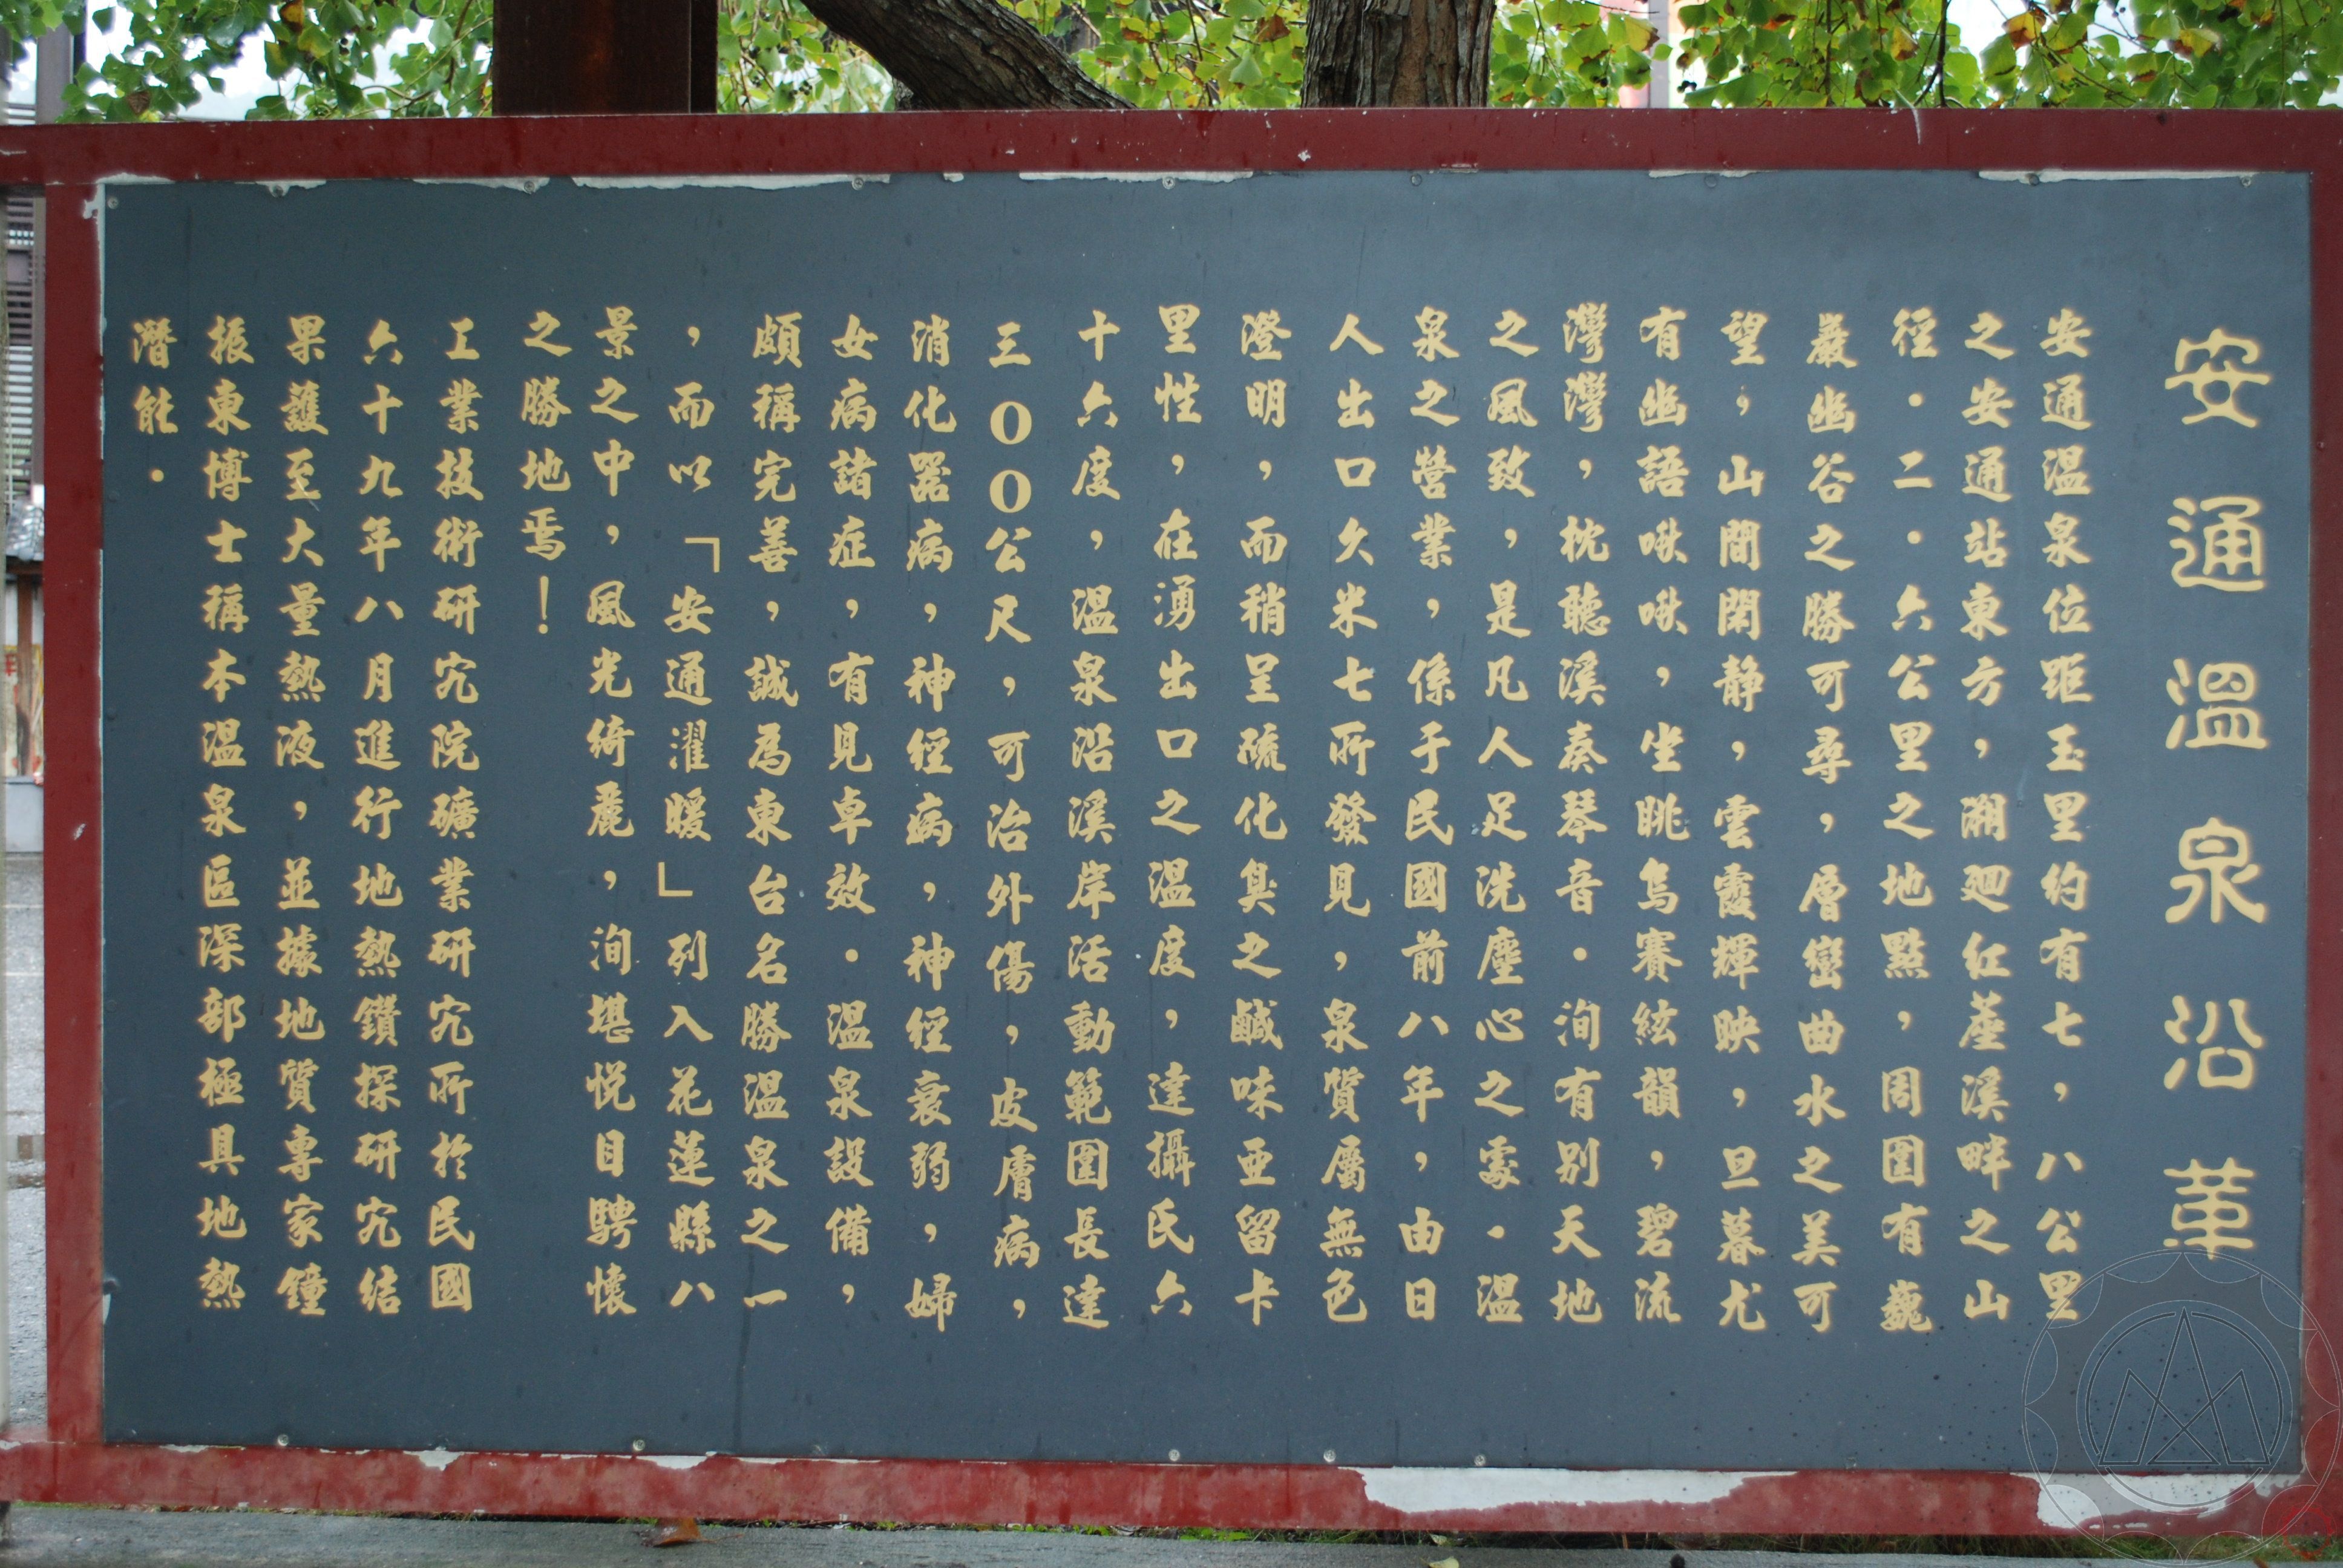 安通溫泉沿革
安通溫泉位距玉里約有七，八公里
之安通站東方，溯迴紅蓙溪畔之山
徑．二．六公里之地點，周圍有巍
巖幽谷之勝可尋，層巒曲水之美可
望，山間閑静，雲霞輝映，旦暮尤
有幽語啾啾，坐眺鸟賽絃韻，碧流
灣灣，枕聽溪奏琴音．洵有别天地
之風致，是凡人足洗塵心之處．溫
泉之營業，係于民國前八年，由日
人出口久米七所發見，泉質屬無色
澄明，而稍呈硫化臭之鹹味亜留卡
里性，在湧出口之溫度，達攝氏六
十六度，溫泉沿溪岸活動範圍長達
三００公尺，可治外傷，皮膚病，
消化器病，神經病，神經衰弱，婦
女病諸症，有見卓效．溫泉設備，
頗稱完善，誠為東台名勝溫泉之一
，而以「安通濯暖」列入花蓮縣八
景之中，風光綺麗，洵堪悦目騁懷
之勝地焉！
工業技術研究院礦業研究所於民國
六十九年八月進行地熱鑽探研究結
果護至大量熱液，並據地質專家鐘
振東博士稱本溫泉區深部極具地熱
潛能．